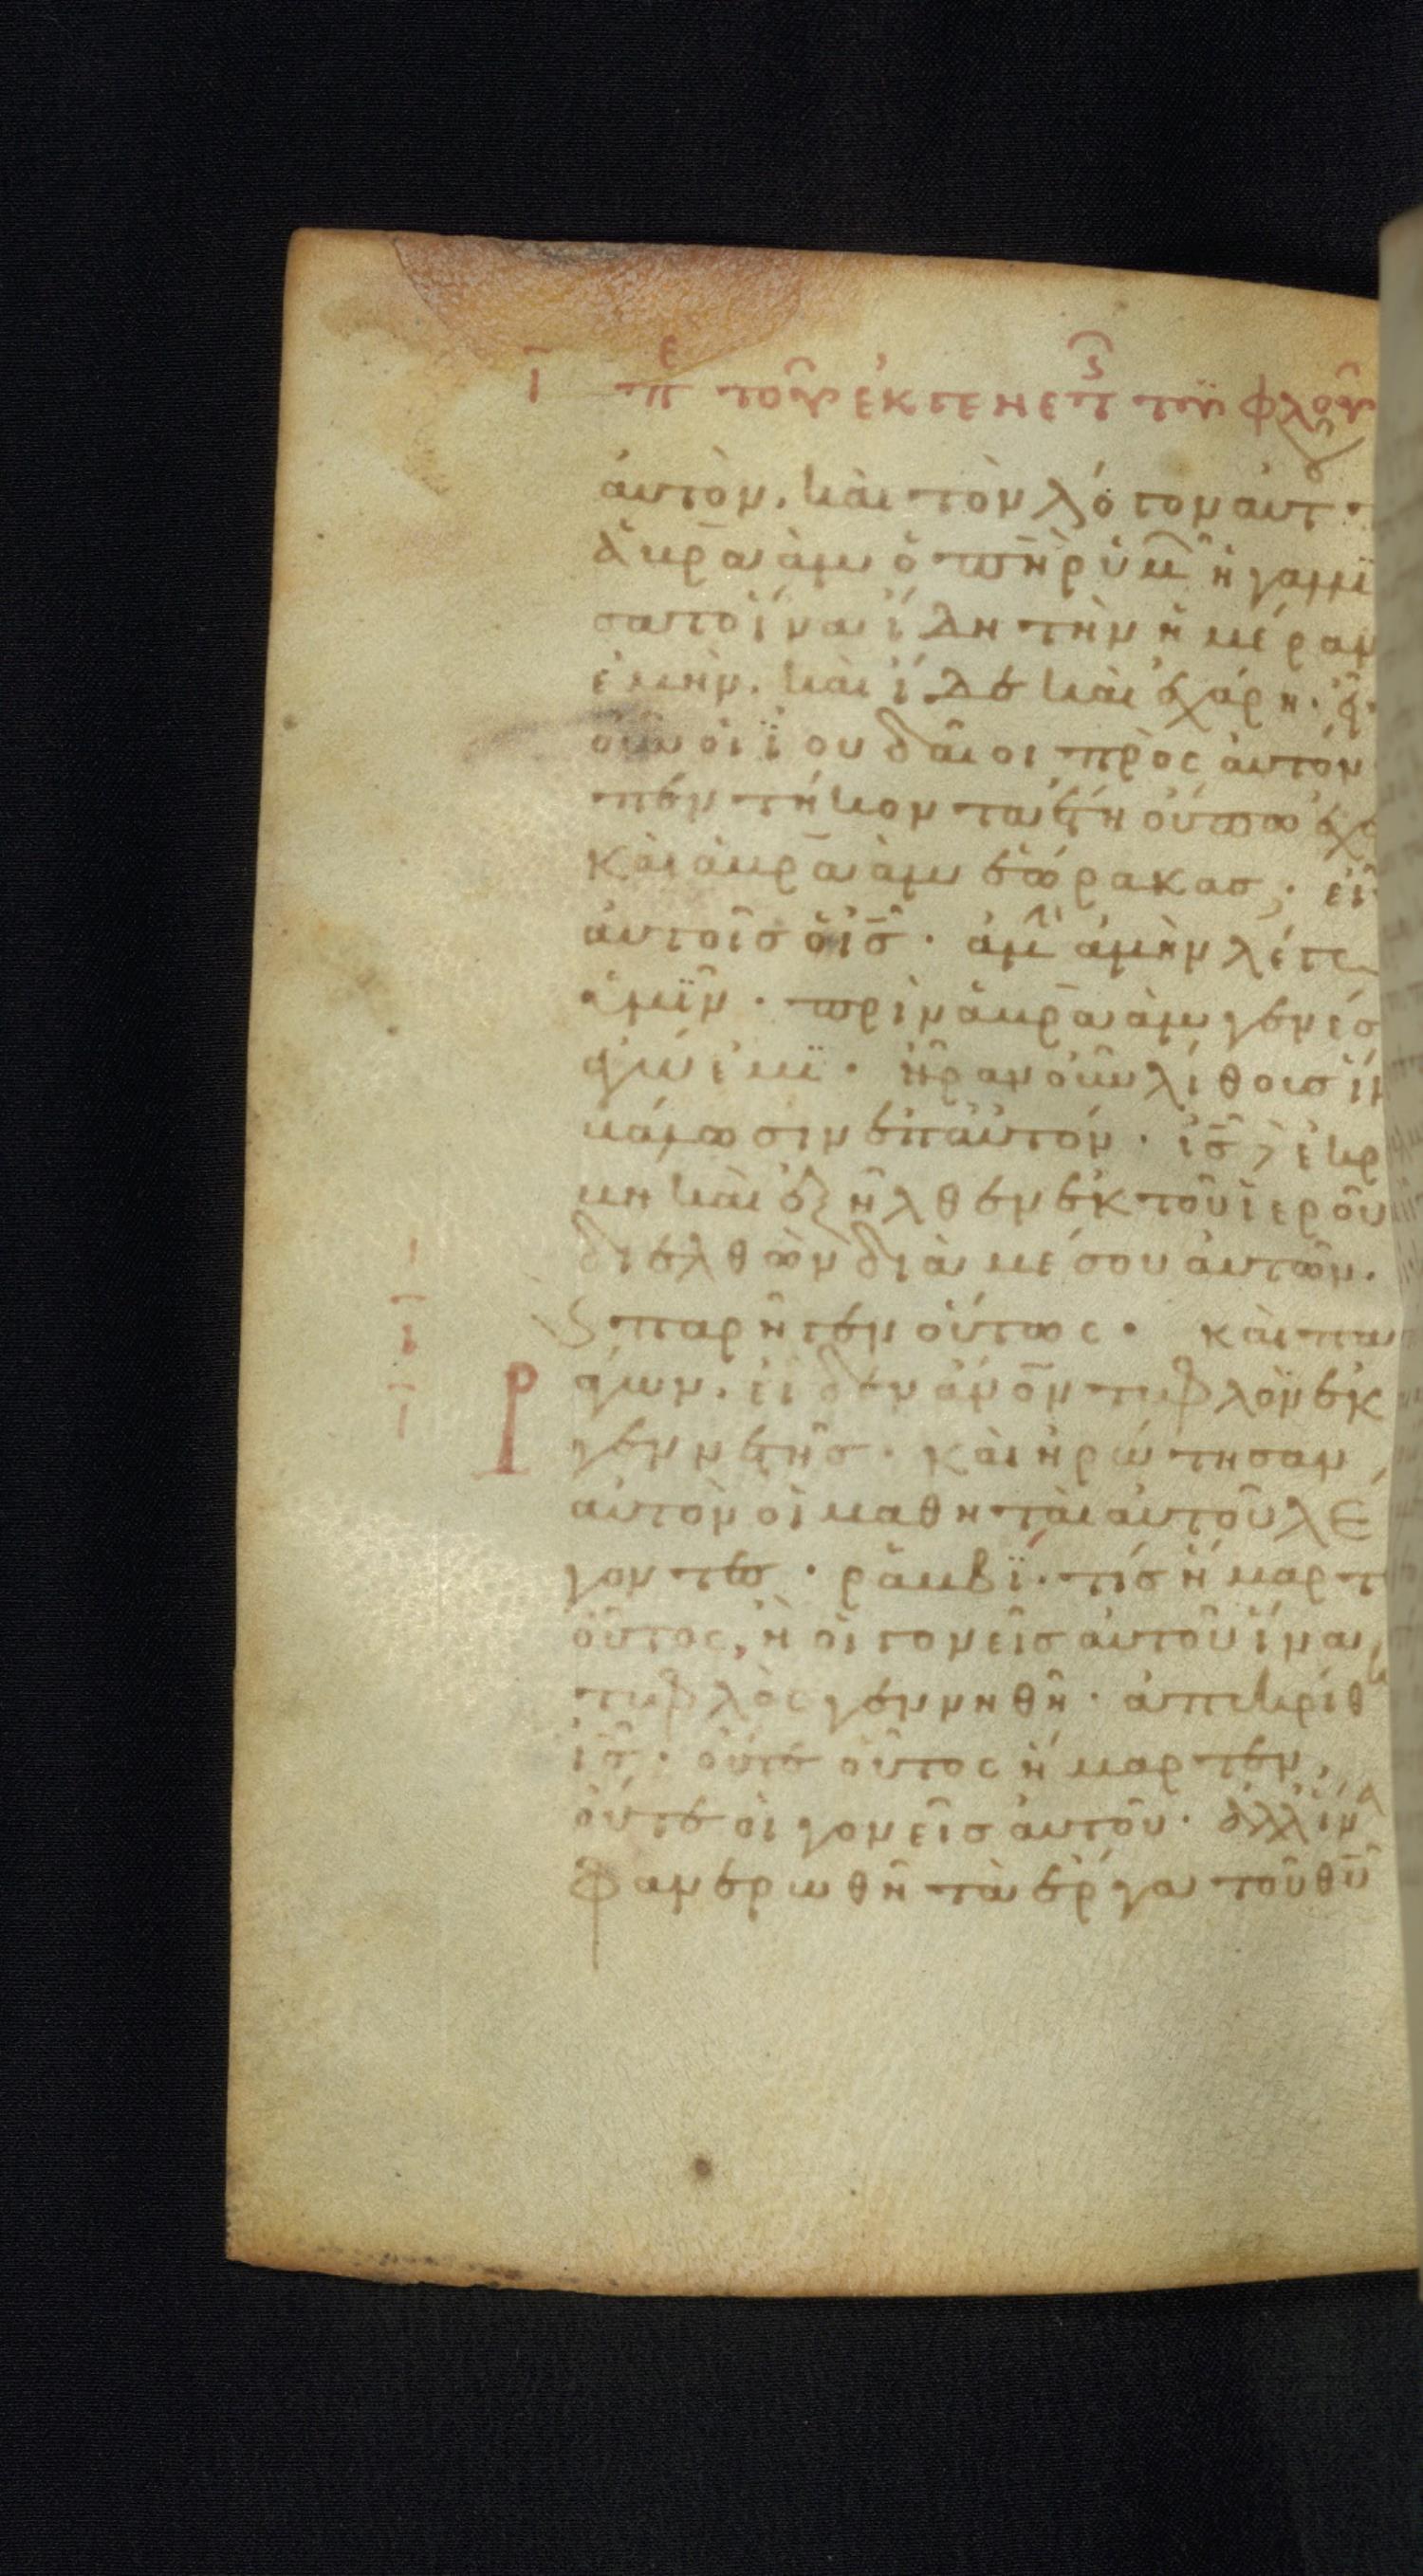 ῑ πε τοῦ ἐκ γενετς τυφλοῦ
ἀυτὸν. κὰι τὸν λόγον ἀυτ
ἁβραὰμ ὁ πὴρ ὑμ ἠγαλλϊ
σατο ἵνα ἴδη τὴν ἡμέραν
ἐμὴν. κὰι ἴδε κὰι ἐχάρη.
οὖν οἱ ἰουδᾶιοι πρὸς ἀυτόν
πεντήκοντα ἔτη ὄυπω ἔχ
κὰι ἁβραὰμ ἑώρακας; εἶ
ἀυτοῖς ὁ ις̄. ἀμ ἀμὴν λέγ
ὑμῖν. πρὶν ἁβραὰμ γενέσ
ἐγώ ἐιμϊ. ἦραν οὖν λίθους ἵν
βάλωσιν ἐπ ἀυτόν. ις̄ δὲ ἐκρ
βη κὰι ἐξῆλθεν ἐκ τοῦ ἱεροῦ
διελθὼν διὰ μέσου ἀυτῶν.
ϗ παρῆγεν ὅυτως. κὰι πα
άγων. εἶδεν ἄνο̄ν τυφλὸν ἐκ
γεννετῆς. κὰι ἠρώτησαν
ἀυτὸν οἱ μαθητὰι ἀυτοῦ λέ
γοντες. ῥαββϊ. τίς ἥμαρτ
οὗτος, ἢ οἱ γονεῖς ἀυτοῦ ἵνα
τυφλὸς γεννηθῆ. ἀπεκρίθη
ις̄. ὄυτε οὗτος ἥμαρτεν,
ὄυτε οἱ γονεῖς ἀυτοῦ. ἀλλ ἵνα
φανερωθῆ τὰ ἔργα τοῦ θῡ